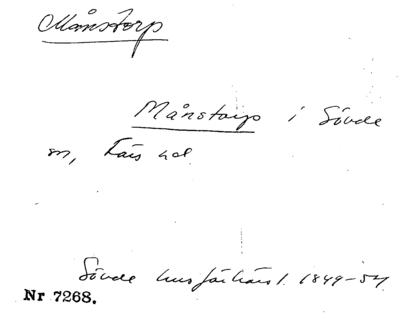 Månstorp
Månstorp i Sövde
sn, Färs hd.
Sövde husförhörsl. 1849-54
Nr 7268.